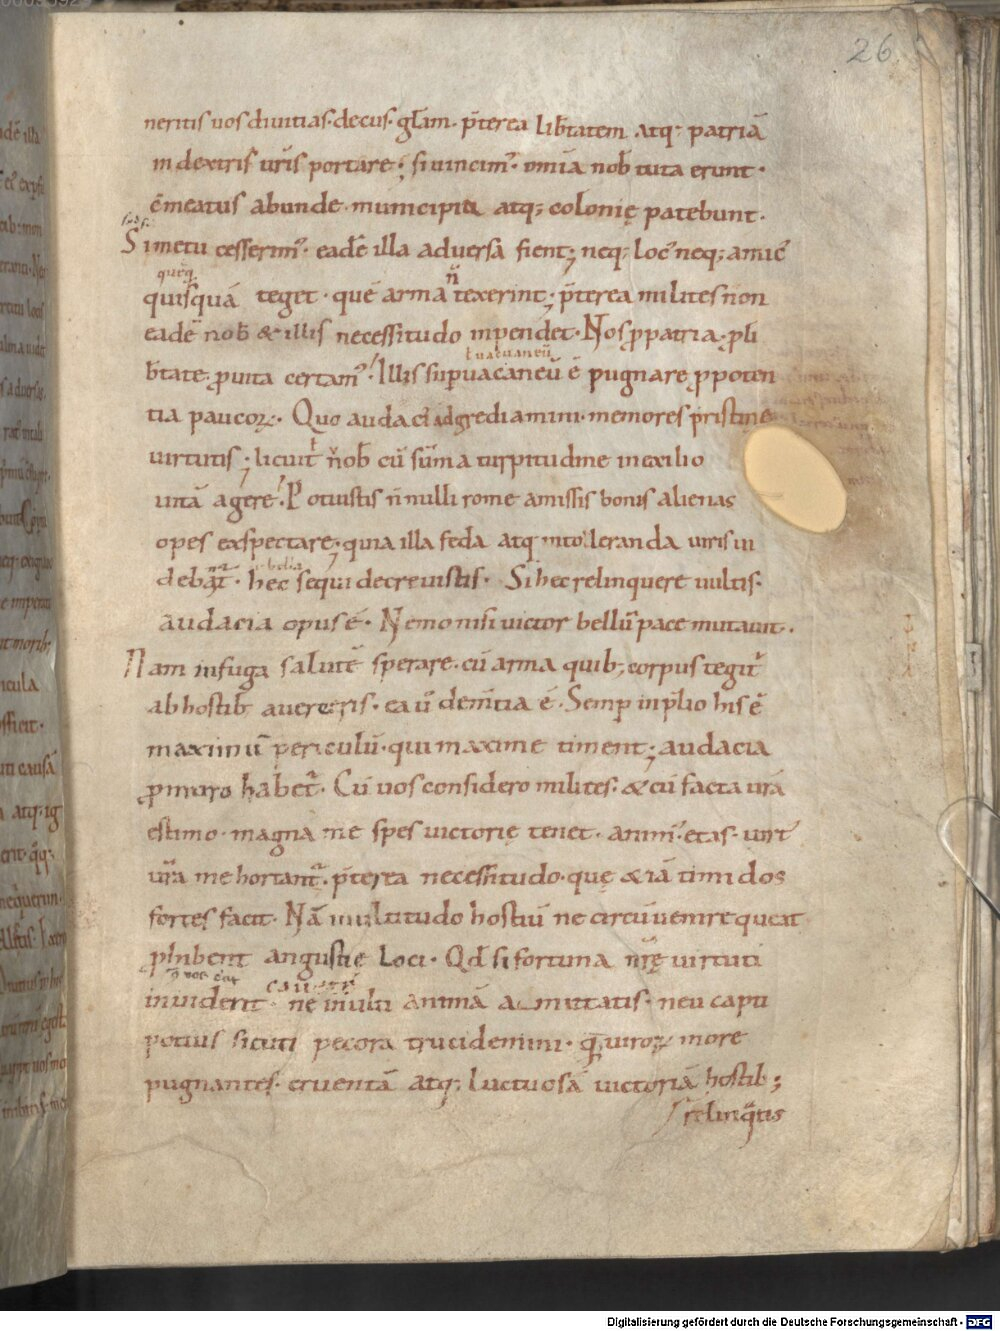 26
neritis uos diuitias· decus· gl̄am· p̄terea lib̄tatem atq; patriā
in dextris ur̄is portare; si uincim᷒· om̄ia nob̄ tuta erunt·
cōmeatus abunde· municipia atq; colonię patebunt·
Si metu cesserim᷒· eadē illa aduersa fient; neq; loc᷒ neq; amic᷒
quisquā teget· quē arma n̄ texerint; p̄terea milites non
eadē nob̄ & illis necessitudo inpendet· Nos ꝓ patria· ꝓ li
b̄tate· ꝓ uita certam᷒· Illis supuacaneū ē pugnare ꝓ poten
tia paucoꝝ· Quo audaci᷒ adgrediamini· memores pristinę
uirtutis; licuit nob̄ cū sūma turpitudine in exilio
uitā agere· Potuistis n̄nulli rome amissis bonis alienas
opes exspectare; quia illa feda atq; intolleranda uiris ui
debant᷑· hec sequi decreuistis· Si hec relinquere uultis·
audacia opus ē· Nemo nisi uictor bellū pace mutauit·
Nam in fuga salutē sperare· cū arma quib; corpus tegit᷑
ab hostib; auerteris· ea ū dem̄tia ē· Semp in p̄lio his ē
maximū periculū· qui maxime timent; audacia
ꝓ muro habet᷑· Cū uos considero milites· & cū facta ur̄a
estimo· magna me spes uictorię tenet· anim᷒· etas· uirt᷒
ur̄a me hortant᷑· p̄terea necessitudo· quę & iā timidos
fortes facit· Nā multitudo hostiū ne circūuenire queat
ꝓhibent angustie loci· Qd̄ si fortuna ur̄ę uirtuti
inuiderit· cauete ne inulti animā amittatis· neu capti
potius sicuti pecora trucidemini· quā uiroꝝ more
pugnantes· cruentā atq; luctuosā uictoriā hostib;
relinq̄tis
Digitalisierung gefördert durch die Deutsche Forschungsgemeinschaft - DFG